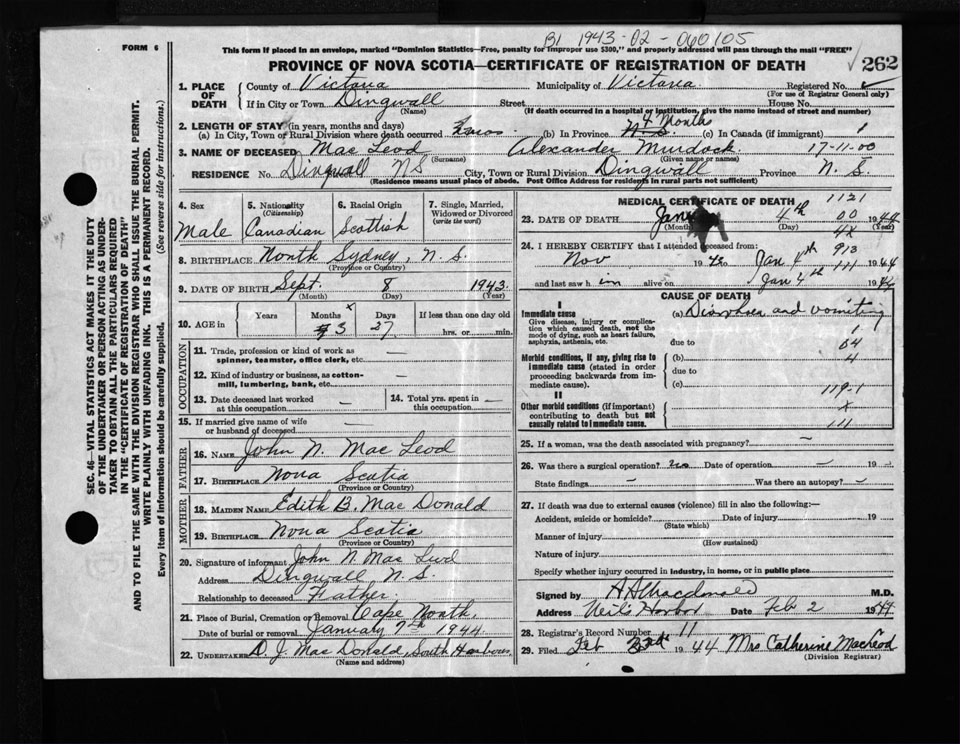 B1 1943-02-060105
FORM 6
This form if placed in an envelope, marked "Dominion Statistics—Free, penalty for improper use $300," and properly addressed will pass through the mail "FREE"
PROVINCE OF NOVA SCOTIA—CERTIFICATE OF REGISTRATION OF DEATH
262
1. PLACE OF DEATH County of Victoria Municipality of Victoria Registered No.
(For use of Registrar General only)
If in City or Town Dingwall Street House No.
(Name) (If death occurred in a hospital or institution, give the name instead of street and number)
2. LENGTH OF STAY (in years, months and days) 4 Months
(a) In City, Town or Rural Division where death occurred (b) In Province N.S. (c) In Canada (if immigrant)
3. NAME OF DECEASED Mac Leod Alexander Murdock 17-11-00
(Surname) (Given name or names)
RESIDENCE No. Dingwall Street NS City, Town or Rural Division Dingwall Province N. S.
(Residence means usual place of abode. Post Office Address for residents in rural parts not sufficient)
4. Sex
Male
5. Nationality
(Citizenship)
Canadian
6. Racial Origin
Scottish
7. Single, Married, Widowed or Divorced
(write the word)
8. BIRTHPLACE North Sydney, N. S.
(Province or Country)
9. DATE OF BIRTH Sept. 8 1943
(Month) (Day) (Year)
10. AGE in Years Months Days If less than one day
3 27 hrs. or min.
OCCUPATION
11. Trade, profession or kind of work as spinner, teamster, office clerk, etc. —
12. Kind of industry or business, as cotton-mill, lumbering, bank, etc. —
13. Date deceased last worked at this occupation —
14. Total yrs. spent in this occupation —
15. If married give name of wife or husband of deceased —
FATHER
16. NAME John N. Mac Leod
17. BIRTHPLACE Nova Scotia
(Province or Country)
MOTHER
18. MAIDEN NAME Edith B. Mac Donald
19. BIRTHPLACE Nova Scotia
(Province or Country)
20. Signature of informant John N Mac Leod
Address Dingwall N. S.
Relationship to deceased Father
21. Place of Burial, Cremation or Removal Cape North,
Date of burial or removal January 7th 1944
22. UNDERTAKER D. J. Mac Donald, South Harbour,
(Name and address)
MEDICAL CERTIFICATE OF DEATH 1121
23. DATE OF DEATH Jan 4th 00 1944
(Month) (Day) (Year)
24. I HEREBY CERTIFY that I attended deceased from: 4x
Nov 19 to Jan 4th 913 1944
and last saw h im alive on Jan 4th 111 1944
CAUSE OF DEATH
I
Immediate cause
Give disease, injury or complication which caused death, not the mode of dying, such as heart failure, asphyxia, asthenia, etc.
(a) Diarrhoea and vomiting
1
due to 64
Morbid conditions, if any, giving rise to immediate cause (stated in order proceeding backwards from immediate cause).
(b) 4
due to
(c)
II
119-1
Other morbid conditions (if important) contributing to death but not causally related to immediate cause.
x
111
25. If a woman, was the death associated with pregnancy? —
26. Was there a surgical operation? no Date of operation — 19 —
State findings — Was there an autopsy? —
27. If death was due to external causes (violence) fill in also the following:—
Accident, suicide or homicide? Date of injury 19
(State which)
Manner of injury
(How sustained)
Nature of injury
Specify whether injury occurred in industry, in home, or in public place
Signed by A A Macdonald M.D.
Address Neils Harbor Date Feb 2 1944
28. Registrar's Record Number 11
29. Filed Feb 1944 Mrs Catherine MacLeod
(Division Registrar)
SEC. 46—VITAL STATISTICS ACT MAKES IT THE DUTY
OF THE UNDERTAKER OR PERSON ACTING AS UNDER-
TAKER TO OBTAIN ALL THE PARTICULARS REQUIRED
IN THE "CERTIFICATE OF REGISTRATION OF DEATH"
AND TO FILE THE SAME WITH THE DIVISION REGISTRAR WHO SHALL ISSUE THE BURIAL PERMIT.
WRITE PLAINLY WITH UNFADING INK. THIS IS A PERMANENT RECORD.
Every item of information should be carefully supplied. (See reverse side for instructions.)